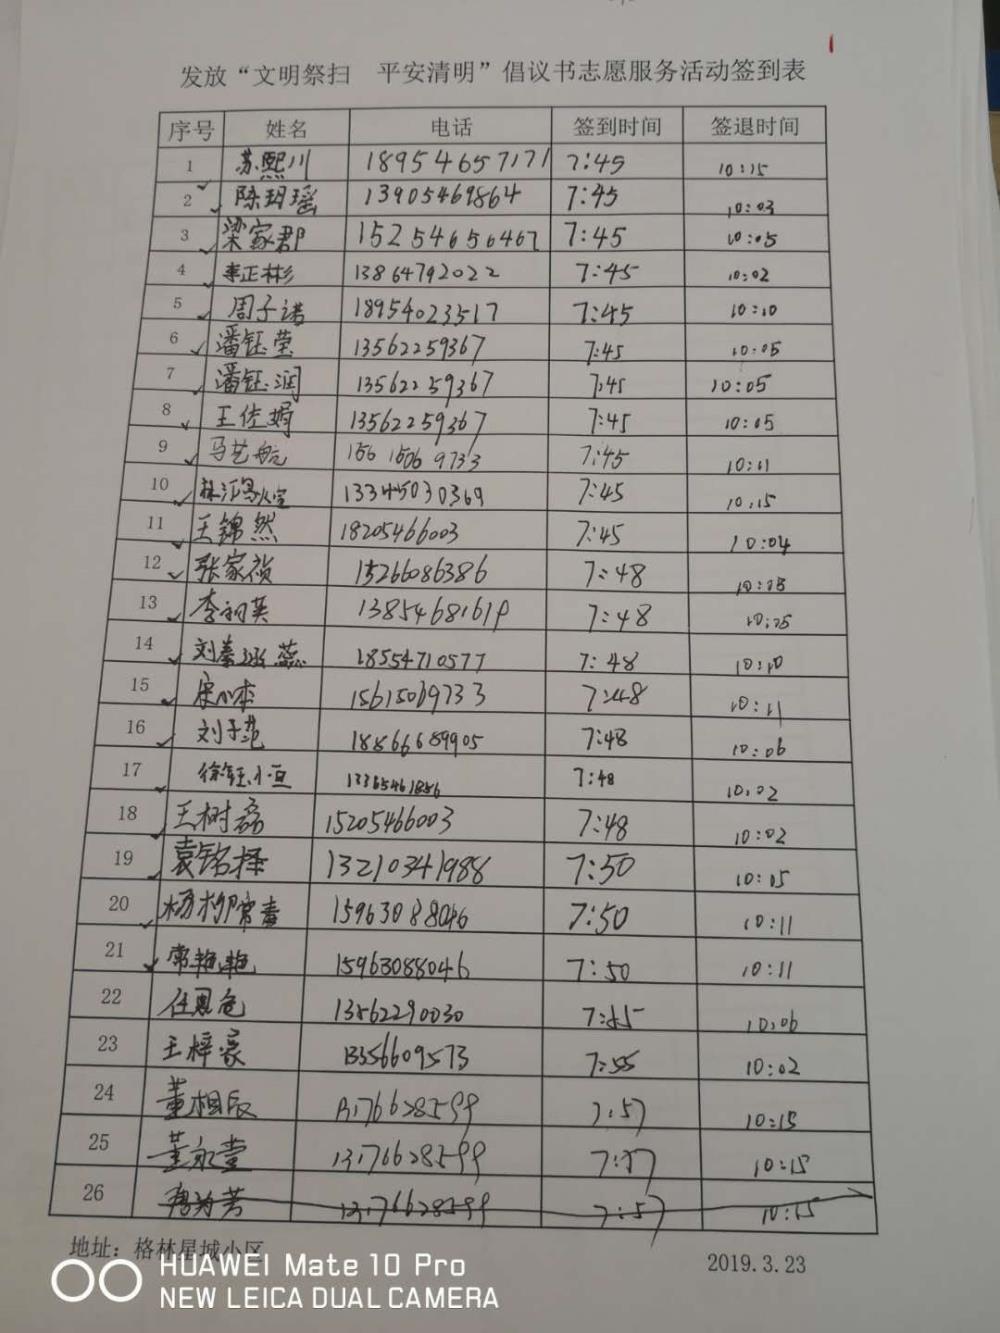 发放“文明祭扫 平安清明”倡议书志愿服务活动签到表
序号 姓名 电话 签到时间 签退时间
1 苏熙川 18954657171 7:45 10:15
2 陈玥瑶 13905469864 7:45 10:03
3 梁家郡 15254656467 7:45 10:05
4 李正彬 13864792022 7:45 10:02
5 周子诺 18954023517 7:45 10:10
6 潘钰莹 13562259367 7:45 10:05
7 潘钰润 13562259367 7:45 10:05
8 王佐娟 13562259367 7:45 10:05
9 马艺航 15615069733 7:45 10:11
10 13345030369 7:45 10:15
11 王锦然 18205466003 7:45 10:04
12 张家祯 15266086386 7:48 10:08
13 李初英 13854681619 7:48
14 刘秦 蕊 18554710577 7:48 10:10
15 宋小杰 15615069733 7:48 10:11
16 刘子苑 18866689905 7:48 10:06
17 徐钰 13365461856 7:48 10:02
18 王树磊 15205466003 7:48 10:02
19 袁铭择 13210341988 7:50 10:15
20 杨柳常青 15963088046 7:50 10:11
21 常艳艳 15963088046 7:50 10:11
22 任思危 13562290030 10:06
23 王梓豪 13356609573 7:55 10:02
24 董相辰 13176628599 7:57 10:15
25 董永堂 13176628599 7:57 10:15
26 13176628599 7:57 10:15
地址：格林星城小区
2019.3.23
HUAWEI Mate 10 Pro
NEW LEICA DUAL CAMERA